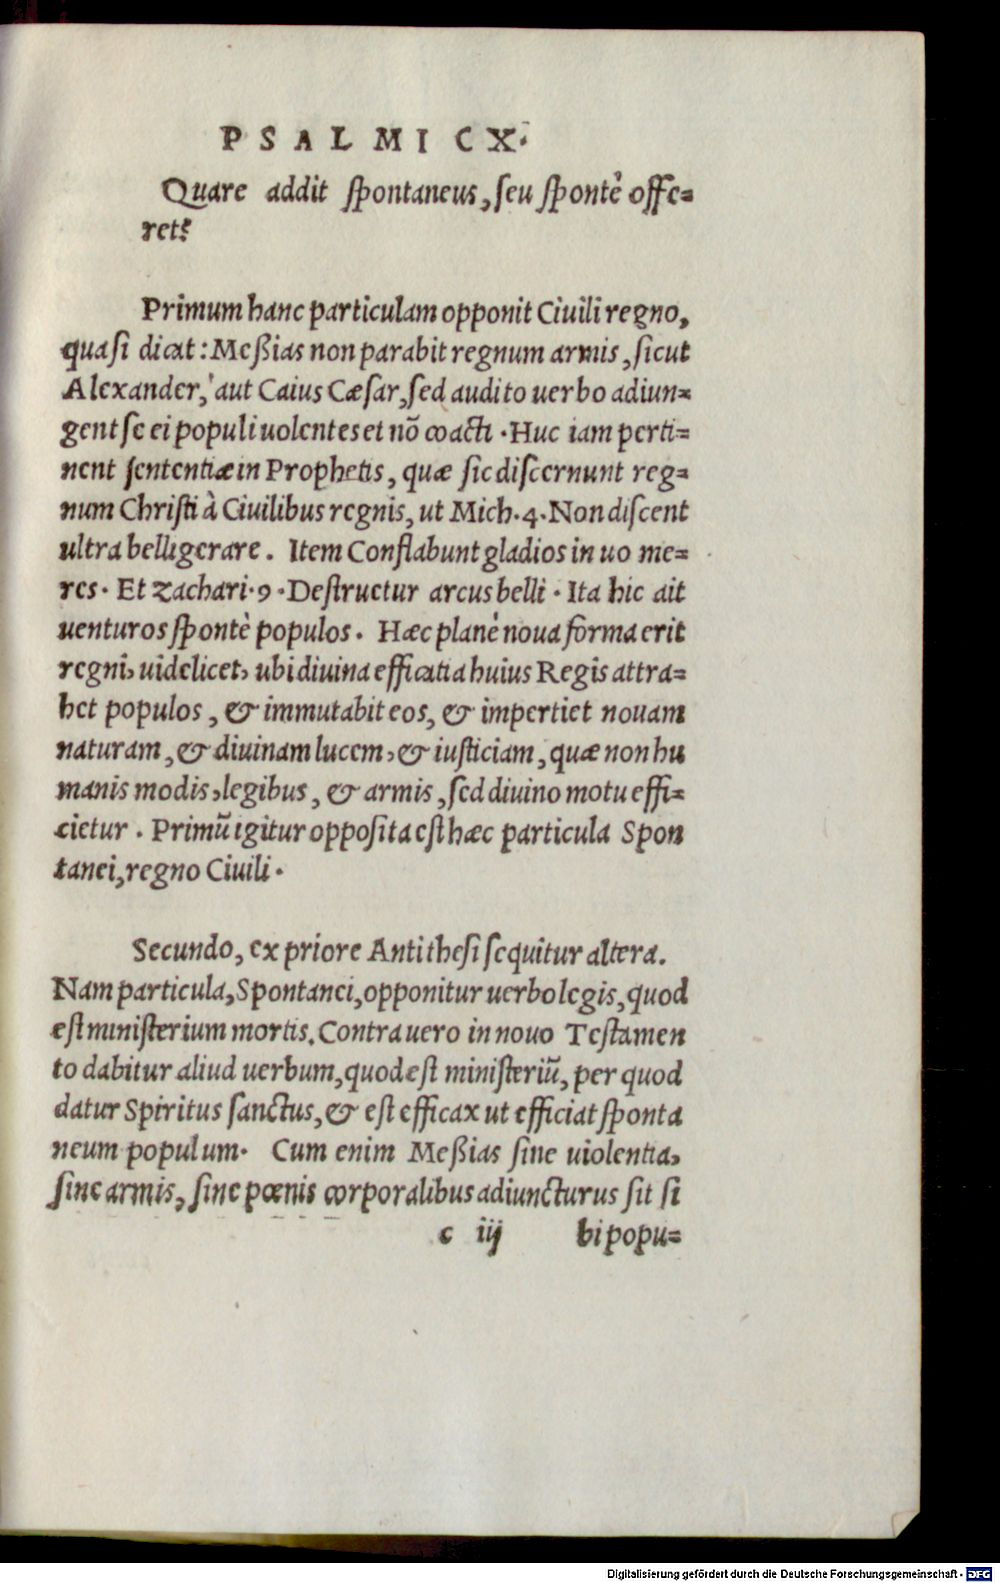 PSALMI CX.
Quare addit ſpontaneus, ſeu ſpontè offe=
ret?
Primum hanc particulam opponit Ciuili regno,
quaſi dicat: Meßias non parabit regnum armis, ſicut
Alexander, aut Caius Cæſar, ſed audito uerbo adiun=
gent ſe ei populi uolentes et nō coacti. Huc iam perti=
nent ſententiæ in Prophetis, quæ ſic diſcernunt reg=
num Chriſti à Ciuilibus regnis, ut Mich. 4. Non diſcent
ultra belligerare. Item Conflabunt gladios in uo me=
res. Et Zachari. 9. Deſtruetur arcus belli. Ita hic ait
uenturos ſpontè populos. Hæc planè noua forma erit
regni, uidelicet, ubi diuina efficatia huius Regis attra=
het populos, & immutabit eos, & impertiet nouam
naturam, & diuinam lucem, & iuſticiam, quæ non hu
manis modis, legibus, & armis, ſed diuino motu effi=
cietur. Primū igitur oppoſita eſt hæc particula Spon
tanei, regno Ciuili.
Secundo, ex priore Antitheſi ſequitur altera.
Nam particula, Spontanei, opponitur uerbo legis, quod
eſt miniſterium mortis. Contra uero in nouo Teſtamen
to dabitur aliud uerbum, quod eſt miniſteriū, per quod
datur Spiritus ſanctus, & eſt efficax ut efficiat ſponta
neum populum. Cum enim Meßias ſine uiolentia,
ſine armis, ſine pœnis corporalibus adiuncturus ſit ſi
c iij bi popu=
Digitalisierung gefördert durch die Deutsche Forschungsgemeinschaft - DFG